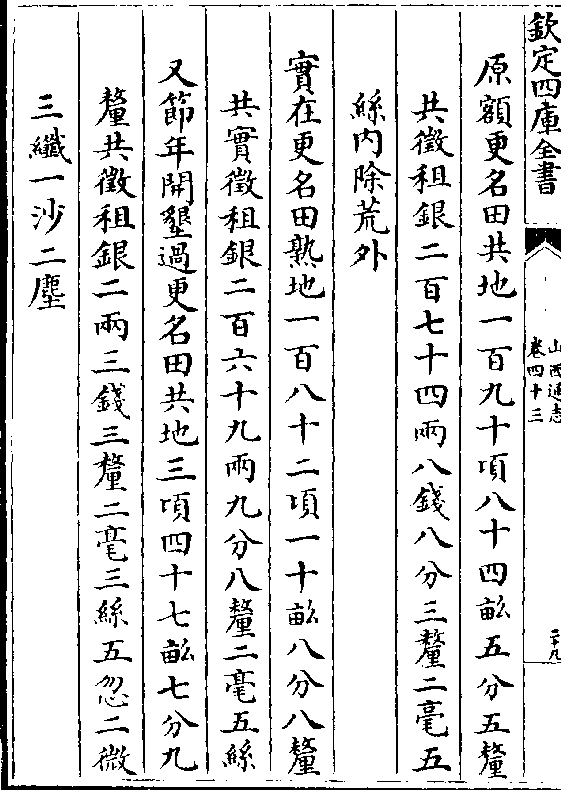 欽定四庫全書
山西通志
卷四十三
二十九
原額更名田共地一百九十頃八十四畝五分五釐
共徵租銀二百七十四兩八錢八分三釐二毫五
絲內除荒外
實在更名田熟地一百八十二項一十畝八分八釐
共實徵租銀二百六十九兩九分八釐二毫五絲
又節年開墾過更名田共地三項四十七畝七分九
釐共徵租銀二兩三錢三釐二毫三絲五忽二微
三纖一沙二塵